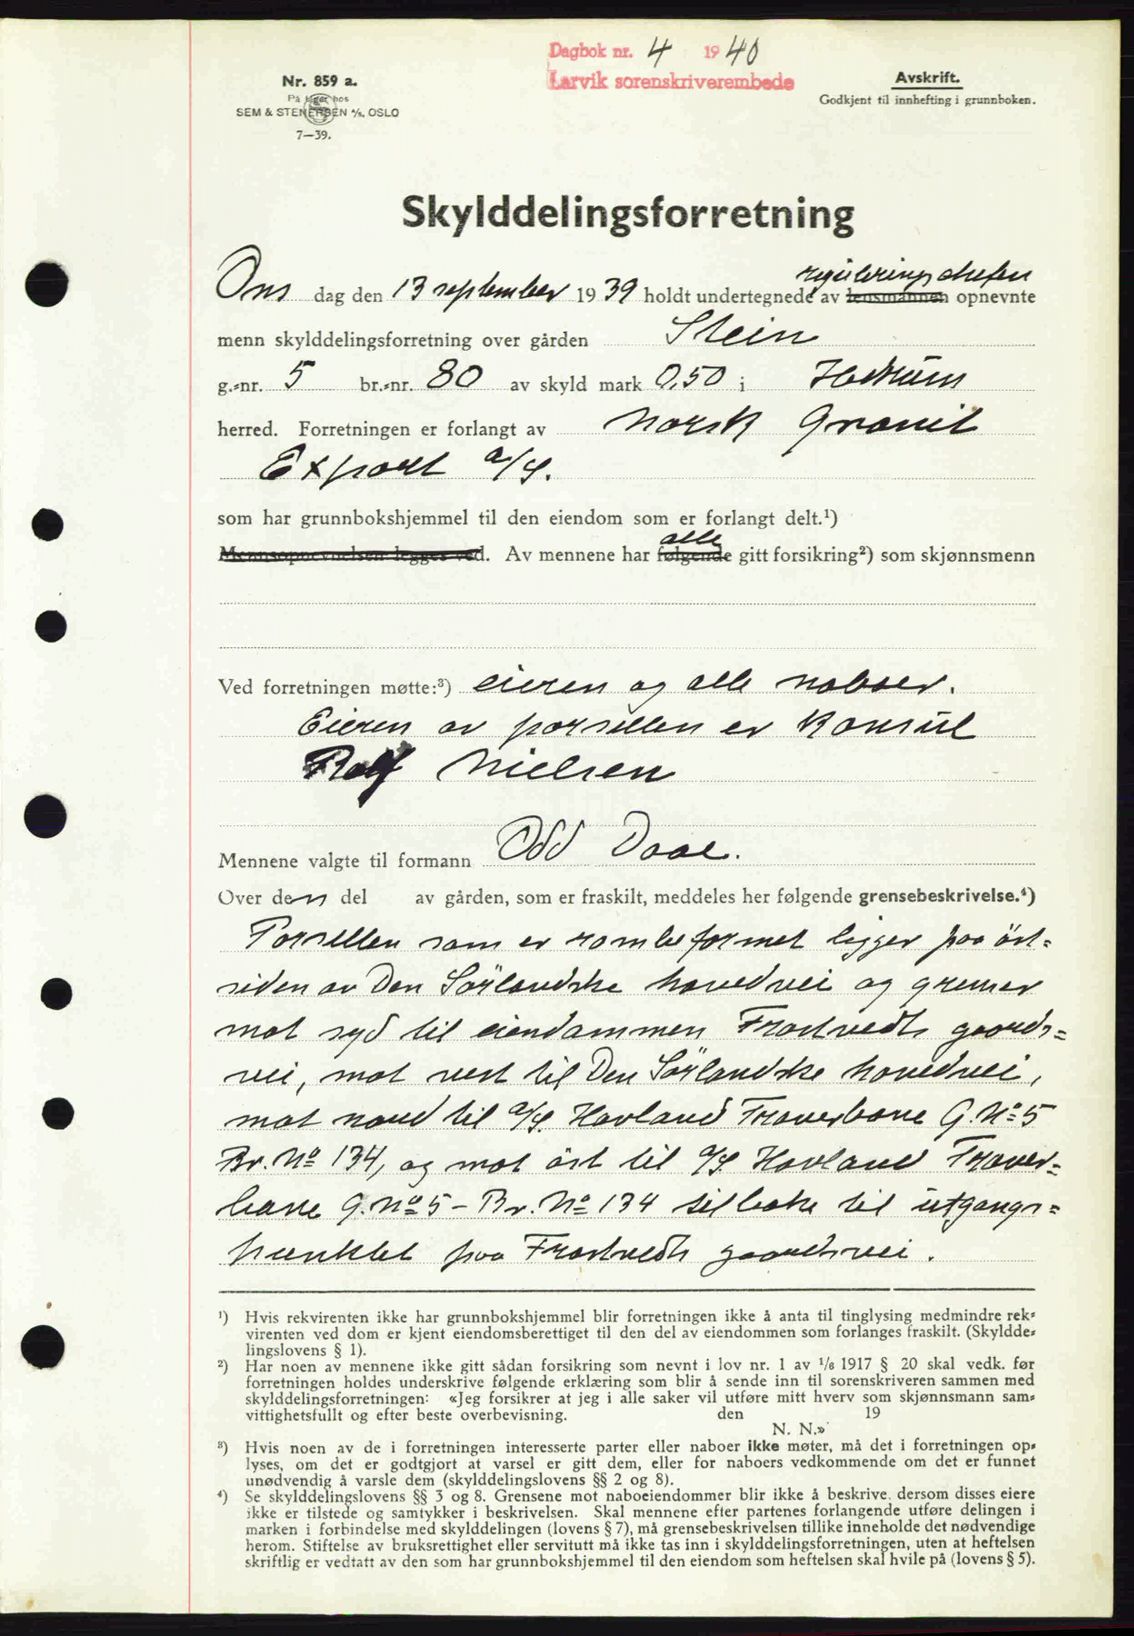 Dagbok nr. 4 1940
Larvik sorenskriverembede
Nr. 859 a.
På lager hos
SEM & STENERSEN A/S. OSLO
7—39.
Avskrift.
Godkjent til innhefting i grunnboken.
Skylddelingsforretning
reguleringschefen
Ons dag den 13 september 1939 holdt undertegnede av lensmannen opnevnte
menn skylddelingsforretning over gården Stein
g.-nr. 5 br.-nr. 80 av skyld mark 0,50 i Hedrum
herred. Forretningen er forlangt av Norsk Granit
Export a/s.
som har grunnbokshjemmel til den eiendom som er forlangt delt.¹)
alle
Mennsopnevnelsen legges ved. Av mennene har følgende gitt forsikring²) som skjønnsmenn
Ved forretningen møtte:³) eieren og alle naboer.
Eieren av parsellen er Konsul
Rolf Nielsen
Mennene valgte til formann Odd Daae.
Over den del av gården, som er fraskilt, meddeles her følgende grensebeskrivelse.⁴)
Parsellen som er rombeformet ligger paa öst-
siden av Den Sörlandske hovedvei og grenser
mot syd til eiendommen Frostvedts gaards-
vei, mot vest til Den Sörlandske hovedvei,
mot nord til a/s. Havland Traverbane G. No 5
Br. No 134, og mot öst til a/s Havland Traver-
bane G. No 5 – Br. No 134 tilbake til utgangs-
punktet paa Frostvedts gaardsvei.
¹) Hvis rekvirenten ikke har grunnbokshjemmel blir forretningen ikke å anta til tinglysing medmindre rek-
virenten ved dom er kjent eiendomsberettiget til den del av eiendommen som forlanges fraskilt. (Skyldde-
lingslovens § 1).
²) Har noen av mennene ikke gitt sådan forsikring som nevnt i lov nr. 1 av 1/6 1917 § 20 skal vedk. før
forretningen holdes underskrive følgende erklæring som blir å sende inn til sorenskriveren sammen med
skylddelingsforretningen: «Jeg forsikrer at jeg i alle saker vil utføre mitt hverv som skjønnsmann sam-
vittighetsfullt og efter beste overbevisning. den 19
N. N.»
³) Hvis noen av de i forretningen interesserte parter eller naboer ikke møter, må det i forretningen op-
lyses, om det er godtgjort at varsel er gitt dem, eller for naboers vedkommende om det er funnet
unødvendig å varsle dem (skylddelingslovens §§ 2 og 8).
⁴) Se skylddelingslovens §§ 3 og 8. Grensene mot naboeiendommer blir ikke å beskrive, dersom disses eiere
ikke er tilstede og samtykker i beskrivelsen. Skal mennene efter partenes forlangende utføre delingen i
marken i forbindelse med skylddelingen (lovens § 7), må grensebeskrivelsen tillike inneholde det nødvendige
herom. Stiftelse av bruksrettighet eller servitutt må ikke tas inn i skylddelingsforretningen, uten at heftelsen
skriftlig er vedtatt av den som har grunnbokshjemmel til den eiendom som heftelsen skal hvile på (lovens § 5).